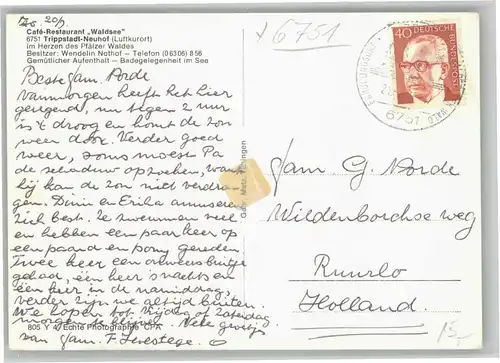 Zo. 20/7
Café-Restaurant „Waldsee“
6751 Trippstadt-Neuhof (Luftkurort)
im Herzen des Pfälzer Waldes
Besitzer: Wendelin Nothof – Telefon (06306) 856
Gemütlicher Aufenthalt – Badegelegenheit im See
Beste fam. Norde
Vanmorgen heeft het hier
geregend, nu tegen 2 uur
is 't droog en komt de zon
weer door. Verder goed
weer, soms moest Pa
de schaduw opzoeken, want
hij kan de zon niet verdra-
gen. Dinie en Erika amuseren
zich best. Ze zwemmen veel
en hebben een paar keer op
een paard en pony gereden.
Twee keer een onweersbuitje
gehad, één keer 's nachts en
één keer in de namiddag,
verder zijn we altijd buiten.
We hopen tot Vrijdag of Zaterdag
morgen te blijven. Vele groetjes
van fam.
805 Y 47 Echte Photographie CPA
Gebr. Metz, Tübingen
x 6751
40
DEUTSCHE
BUNDESPOST
6751
fam. G. Norde
Wildenborchse weg
Ruurlo
Holland.